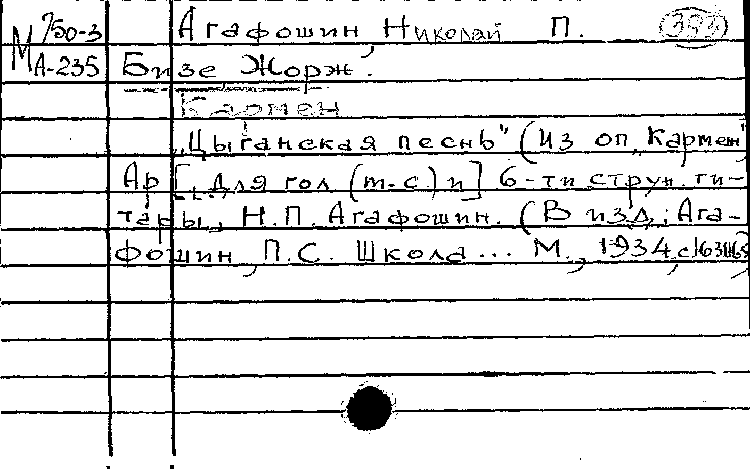 М 750-3 Агафошин, Николай П. 393
А-235 Бизе, Жорж.
Кармен
„Цыганская песнь" (Из оп. „Кармен"
Ар [. Для гол (т-с.) и] 6-ти струн. ги-
тары, Н.П. Агафошин. (В изд.: Ага-
фошин, П.С. Школа... М., 1934, с